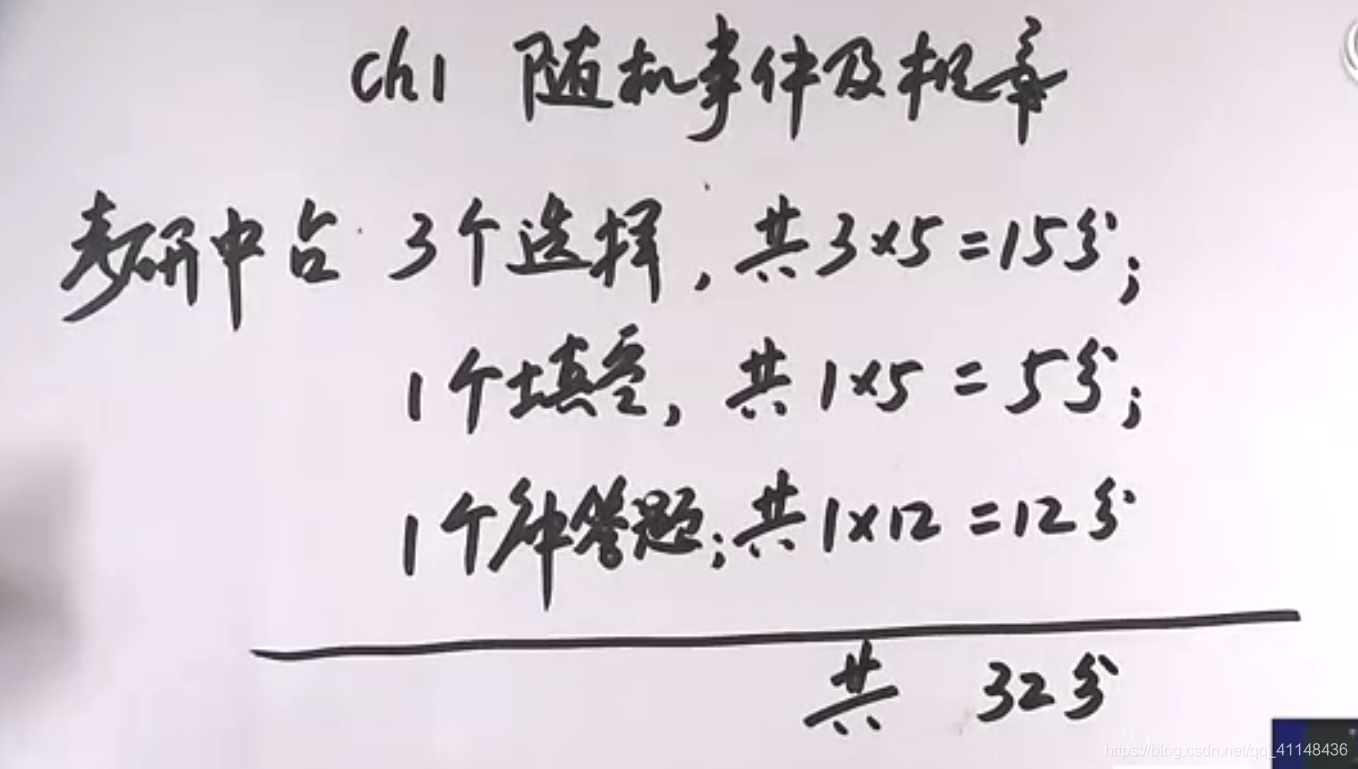 ch1 随机事件及概率
考研中占 3个选择，共3×5=15分；
1个填空，共1×5=5分；
1个解答题；共1×12=12分
共 32分
https://blog.csdn.net/qq_41148436